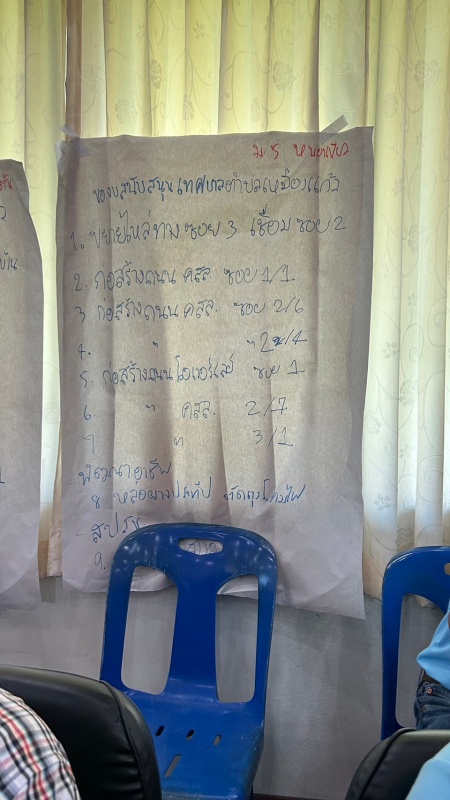 ม.5
ของบสนับสนุนเทศบาลตำบลเหมืองแก้ว
1. ขยายไหล่ทาง ซอย 3 เชื่อม ซอย 2
2. ก่อสร้างถนน คสล. ซอย 1/1
3 ก่อสร้างถนน คสล. ซอย 2/6
4. " " 2/4
5. ก่อสร้างถนนโอเวอร์เลย์ ซอย 1
6 " คสล. 2/7
7 " 3/1
พัฒนาอาชีพ
8 หล่อผางประทีป ตัดตุงโคมไฟ
9.